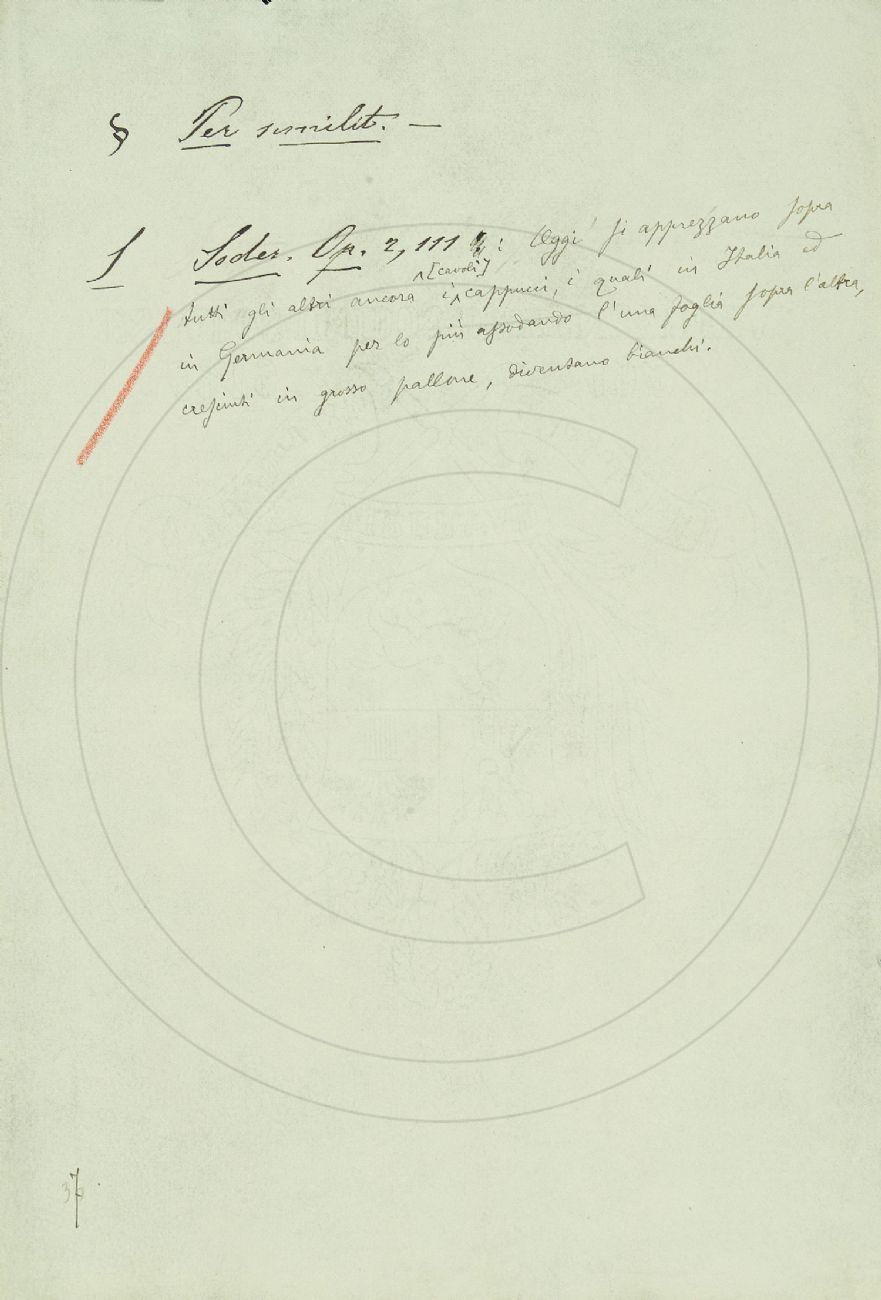 § Per similit. —
S Soder. Op. 2, 111 : Oggi si apprezzano sopra
[cavoli]
tutti gli altri ancora i cappucci, i quali in Italia ed
in Germania per lo più assodando l'una foglia sopra l'altra,
cresciuti in grosso pallone, diventano bianchi.